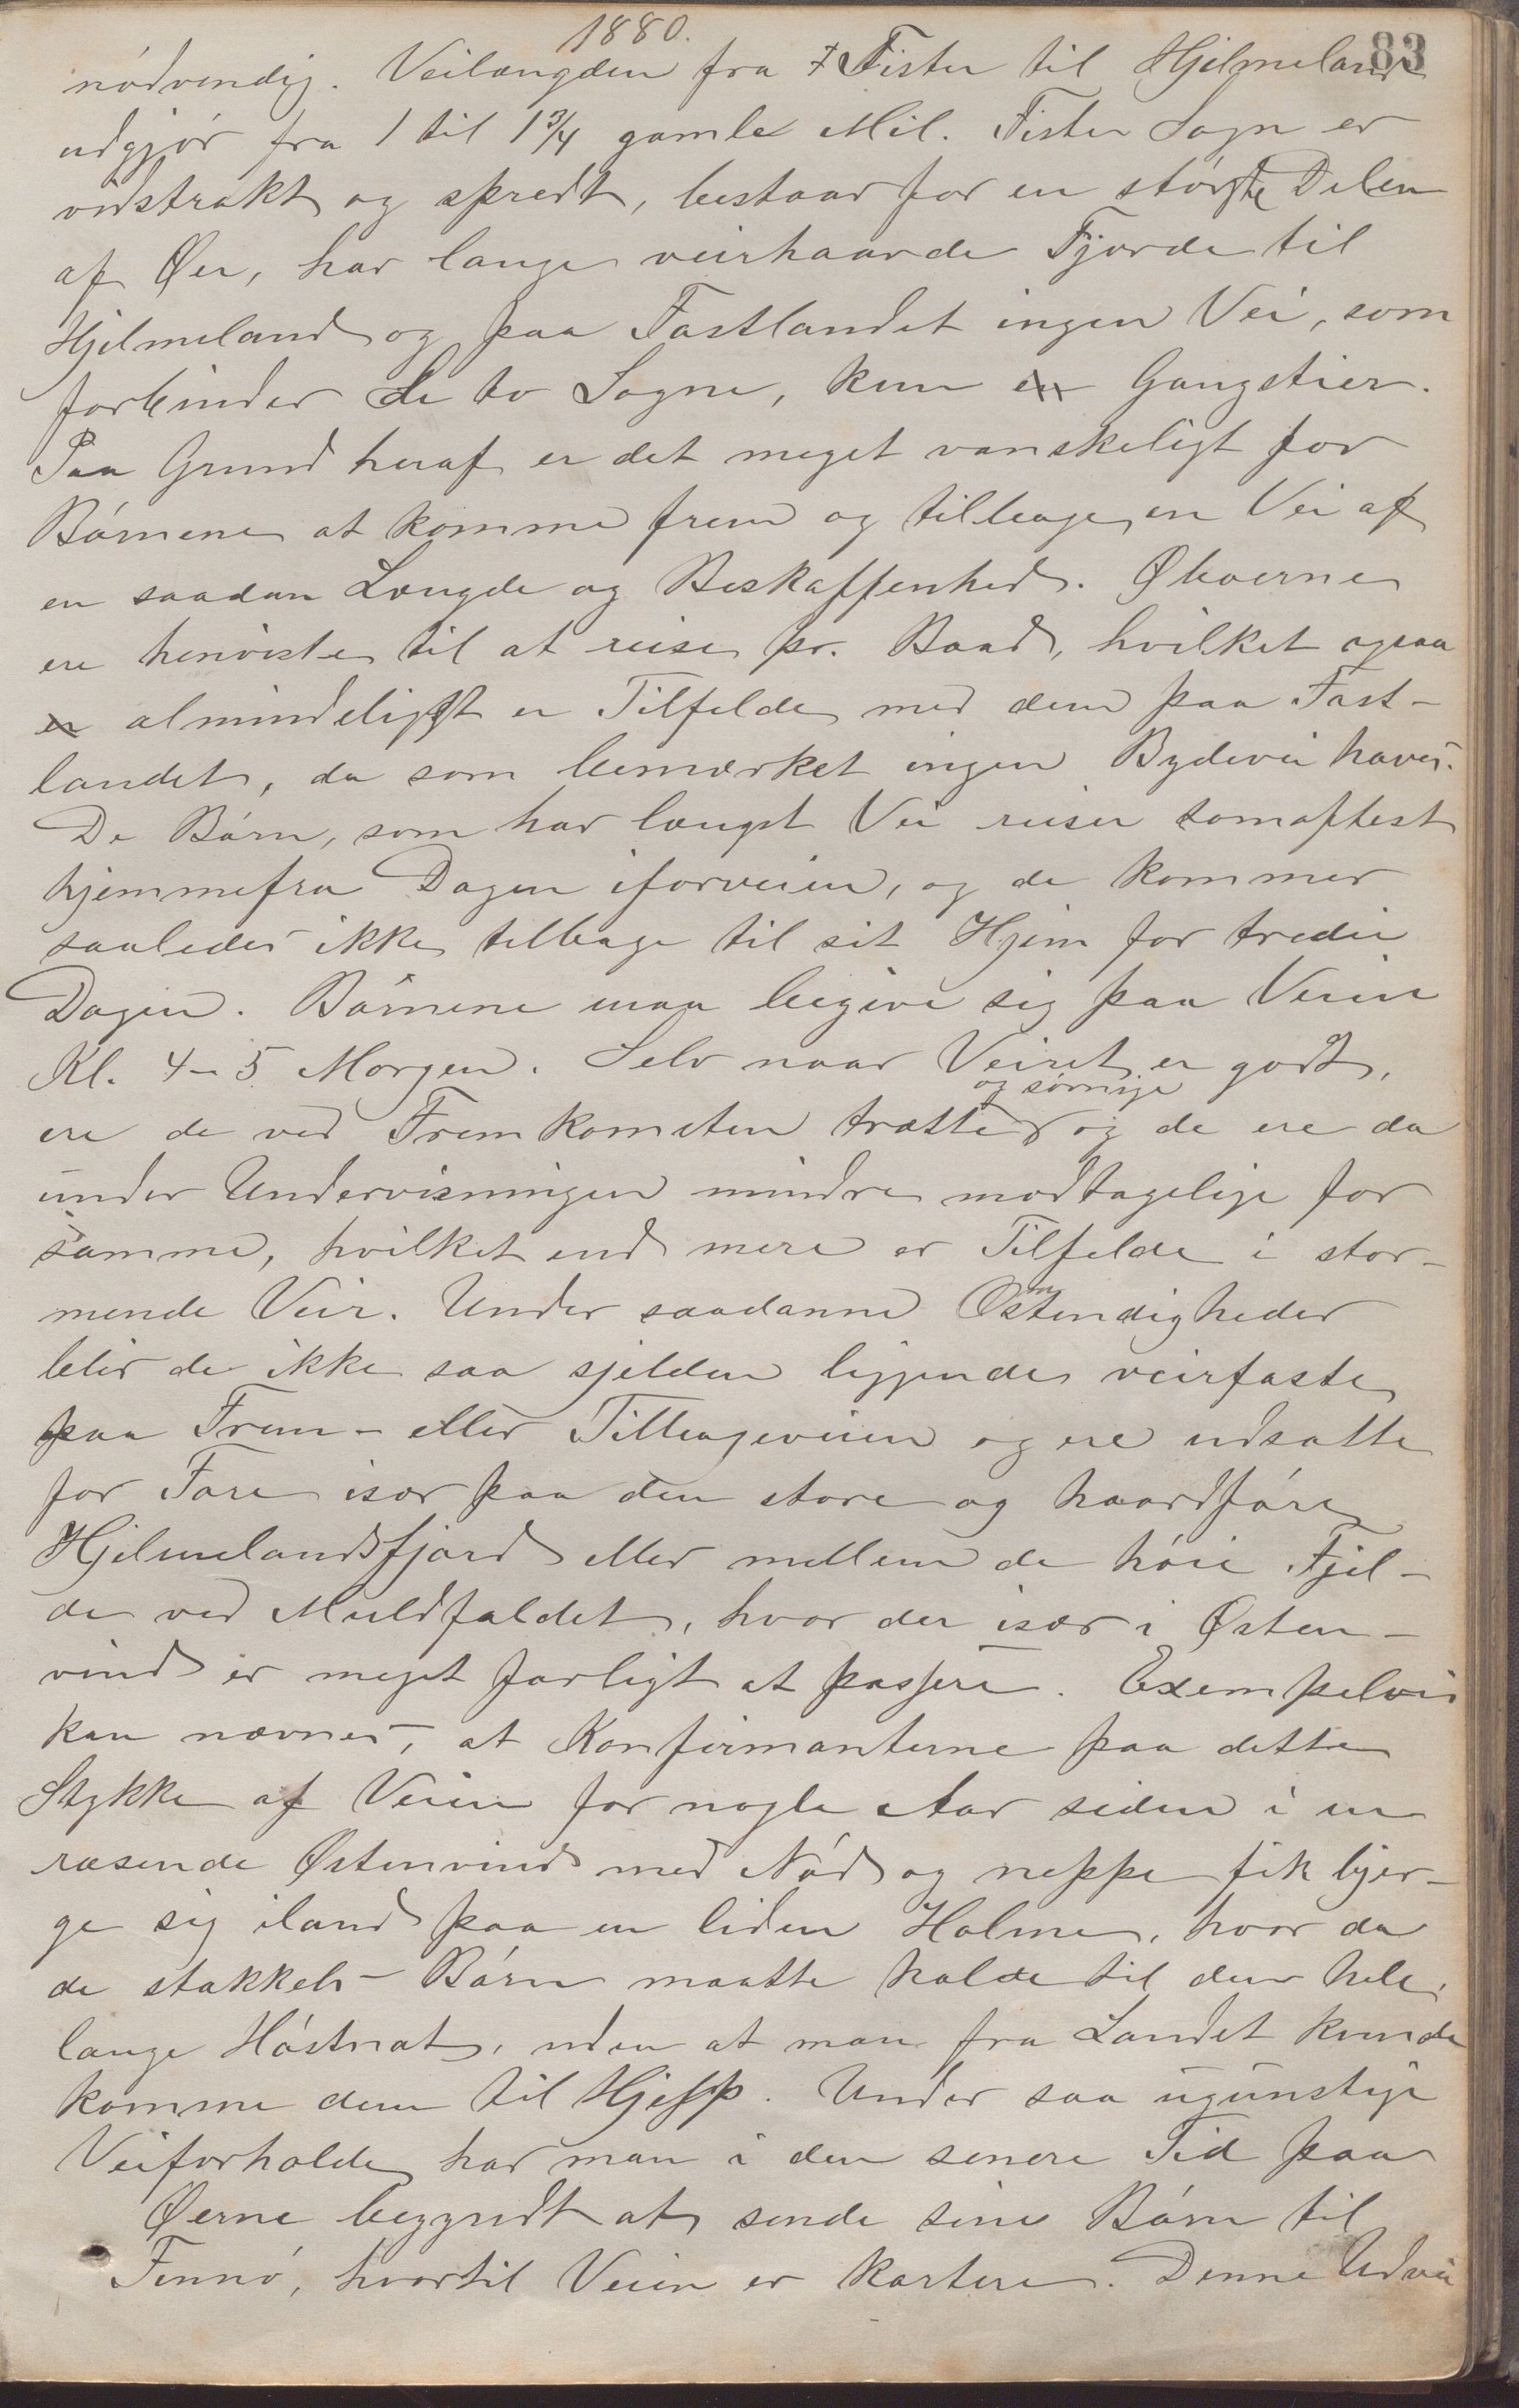 1880.
83
nódvendig. Veilængden fra Fister til Hjelmeland
udgjór fra 1 til 1 3/4 gamle Mil. Fister Sogn er
vidstrakt og spredt, bestaar for en største Delen
af Øer, har lange veirhaarde Fjorde til
Hjelmeland og paa Fastlandet ingen Vei, som
forbinder de to Sogne, kun en Gangstier.
Paa Grund heraf er det meget vanskeligt for
Bórnene at komme frem og tilbage en Vei af
en saadan Længde og Beskaffenhed. Øboerne
ere henviste til at reise pr. Baad, hvilket ogsaa
er almindeligst er Tilfelde med dem paa Fast-
landet, da som bemærket ingen Bydevei haves.
De Bórn, som har længst Vei reiser somoftest
hjemmefra Dagen iforveien, og de kommer
saaledes ikke tilbage til sit Hjem før tredie
Dagen. Bórnene maa begive sig paa Veien
Kl. 4-5 Morgen. Selv naar Veiret er godt,
og sómnige
ere de ved Fremkomsten trætte og de ere da
under Undervisningen mindre modtagelige for
samme, hvilket end mere er Tilfelde i stor-
mende Veir. Under saadanne Omstendigheder
blir de ikke saa sjelden liggende veirfaste
paa Frem- eller Tilbageveien og ere udsatte
for Fare især paa den store og haardfóre
Hjelmelandsfjord eller mellem de hóie Fjel-
de ved Muldfaldet, hvor der især i Østen-
vind er meget farligt at passere. Exempelvis
kan nævnes, at Konfirmanterne paa dette
Stykke af Veien for nogle Aar siden i en
rasende Østenvind med Nód og neppe fik bjer-
ge sig iland paa en liden Holme, hvor da
de stakkels Bórn maatte holde til den hele
lange Hóstnat, uden at man fra Landet kunde
komme dem til Hjelp. Under saa ugunstige
Veiforholde har man i den senere Tid paa
Øerne begyndt at sende sine Bórn til
Finnó, hvortil Veien er kortere. Denne Udvei